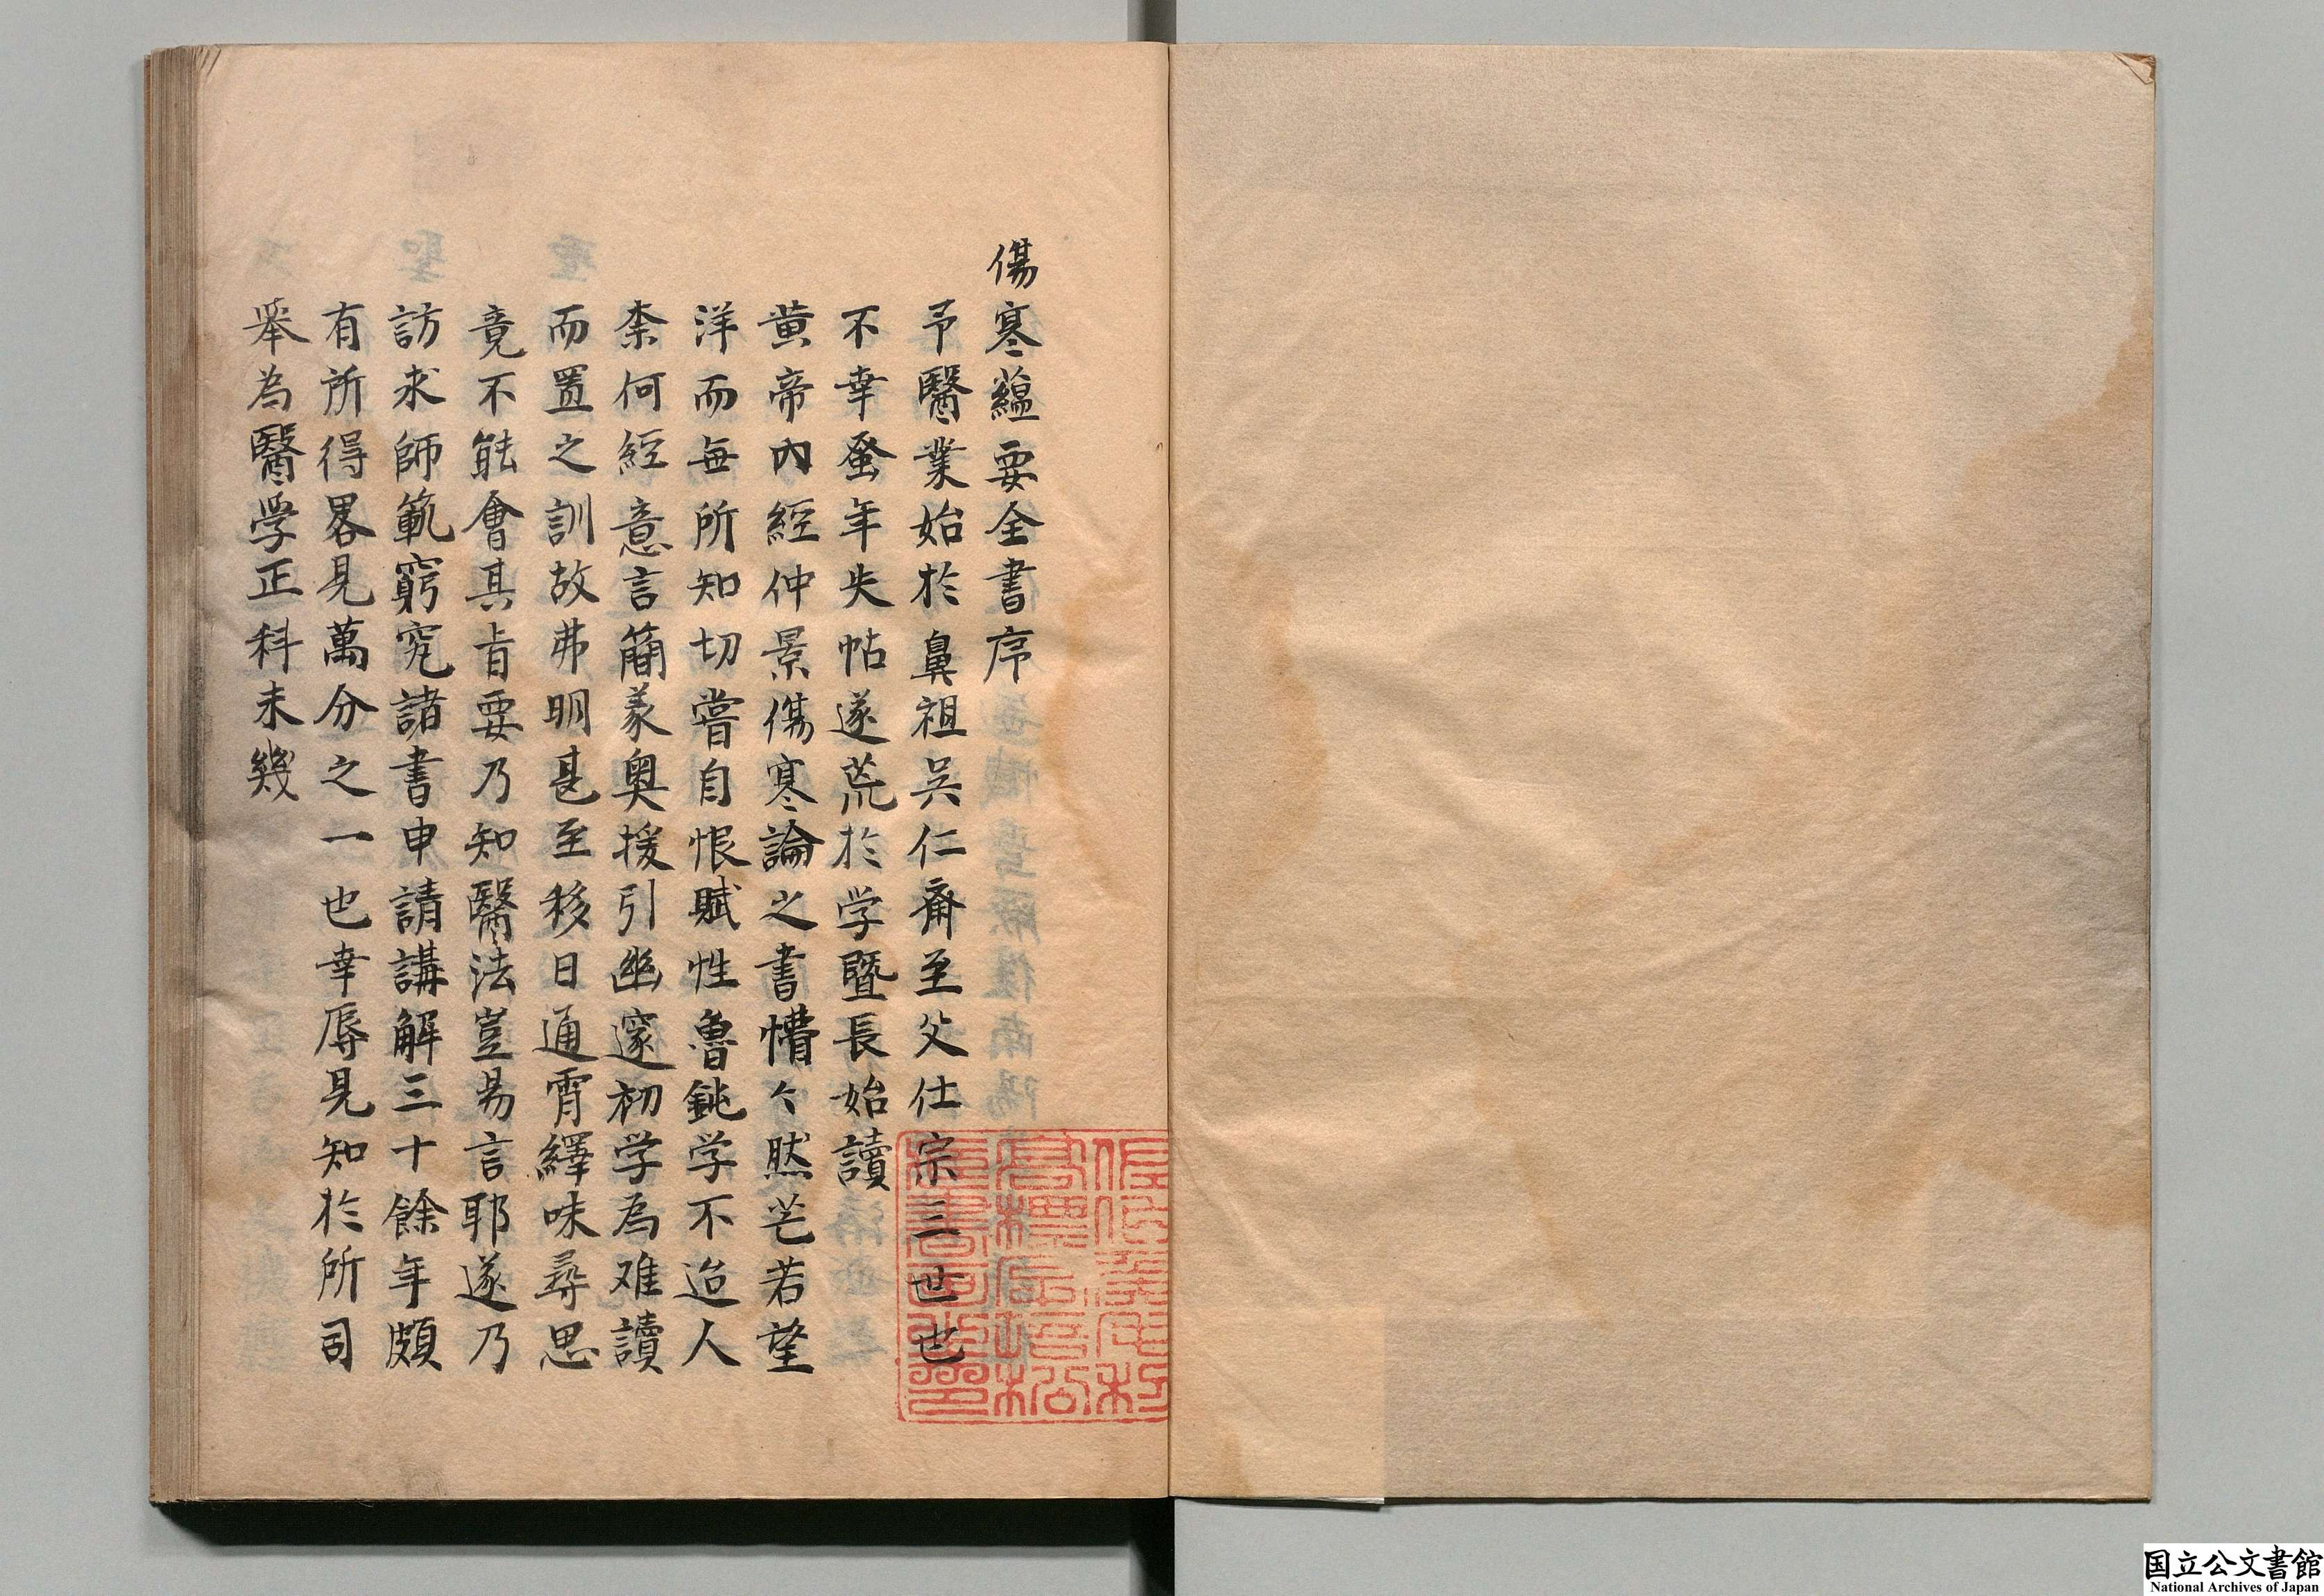 傷寒蘊要全書序
予醫業始於鼻祖吳仁斎至父仕宗三世世
不幸蚤年失帖遂荒於学曁長始讀
黄帝内經仲景傷寒論之書懵々然茫若望
洋而毎所知切嘗自恨賦性魯鈍学不迨人
柰何經意言簡義奥援引幽邃初学為难讀
而置之訓故弗明甚至移日通宵繹味尋思
竟不能會其㫖要乃知醫法豈易言耶遂乃
訪求師範窮究諸書申請講解三十餘年頗
有所得畧見萬分之一也幸辱見知於所司
舉為醫学正科未幾
国立公文書館
National Archives of Japan